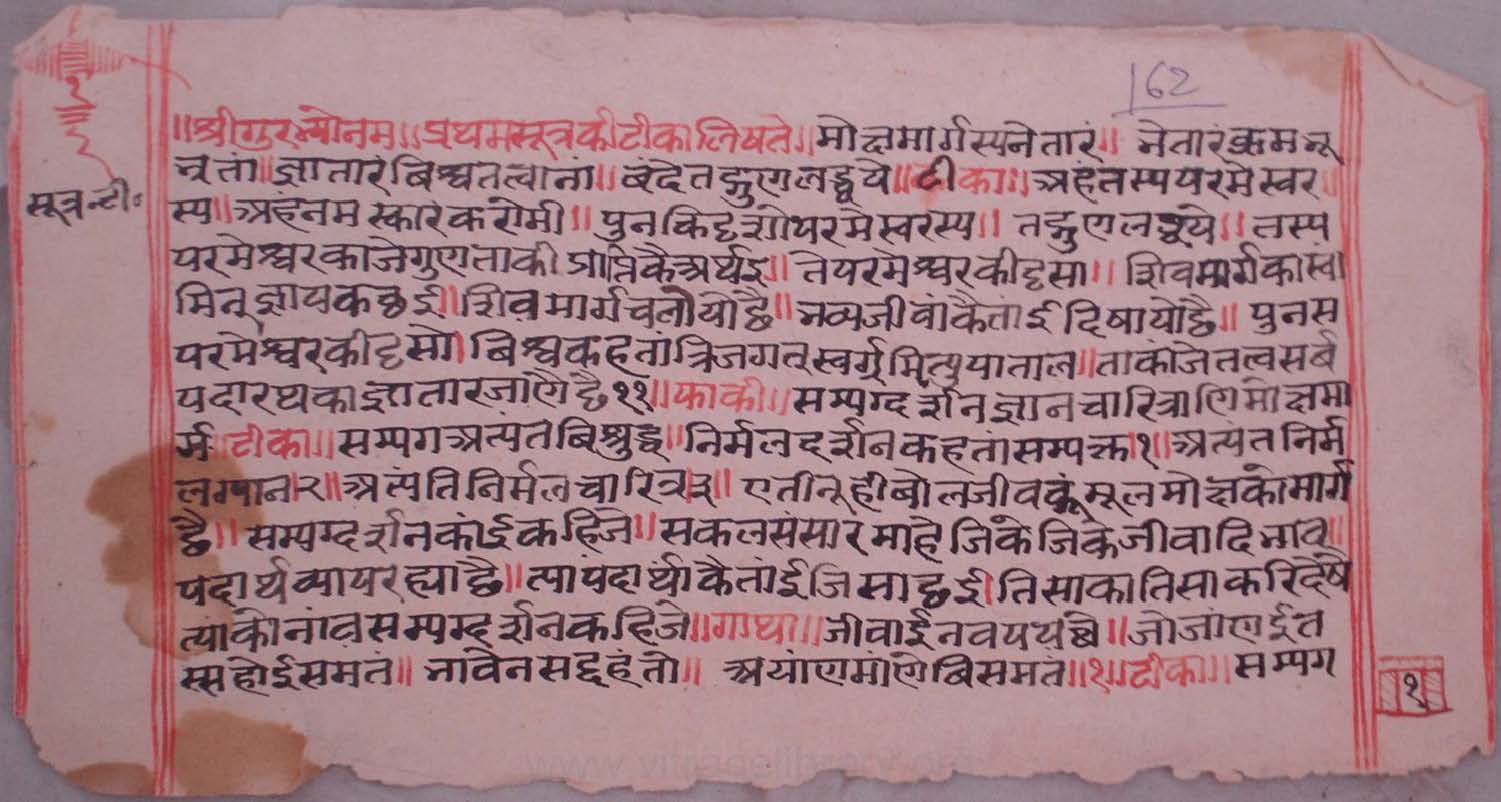 162
॥श्रीगुरुभ्योनम॥प्रथमसूत्रकीटीकालिषते॥मोक्षमार्गस्यनेतारं॥ भेतारंकर्मभू
भ्रतां॥ज्ञातारंबिश्वतत्वानां॥बंदेतद्गुणलब्धये॥टीका॥अहंतस्यपरमेस्वर॥
सूत्रटी॰
स्य॥अहंनमस्कारंकरोमी॥पुनकिद्दशोपरमेस्वरस्य॥तद्गुणलब्धये॥तस्य
परमेश्वरकाजेगुणताकीप्राप्तिकैअर्थइ॥तेपरमेश्वरकीद्दसा॥शिवमार्गकास्वा
मिनूज्ञायकछई॥शिवमार्गचलायोछै॥भव्यजीवांकैतांईदिषायोछै॥पुनस
परमेश्वरकीद्दसो॥बिश्वकहतांत्रिजगतूस्वर्गमित्युपाताल॥ताकांजेतत्वसर्ब
पदारथकाज्ञातारजांणैछै११॥फाकी॥सम्यग्दर्शनज्ञानचारित्राणिमोक्षमा
र्ग॥टीका॥सम्यगअत्यंतबिशुद्ध॥निर्मलदर्शनकहतांसम्यक्त१॥अत्यंतनिर्म
लग्यान२॥अत्यंतिनिर्मलचारित्र३॥एतीनूहीबोलजीवकूंमूलमोक्षकोमार्ग
छै॥सम्यग्दर्शनकांईकहिजे॥सकलसंसारमाहेजिकेजिकेजीवादिभाव॥
पदार्थव्यापरह्याछै॥त्यांपदार्थांकैतांईजिसाछई।तिसाकातिसाकरिदेषै
त्यांकोनांवसम्यग्दर्शनकहिजे॥गाथा॥जीवाईनवपयथ्थे॥जोजांणईत
स्सहोईसमतं॥भावेनसद्दहंतो॥अयांणमांणेबिसमतं॥१॥टीका॥सम्यग
१